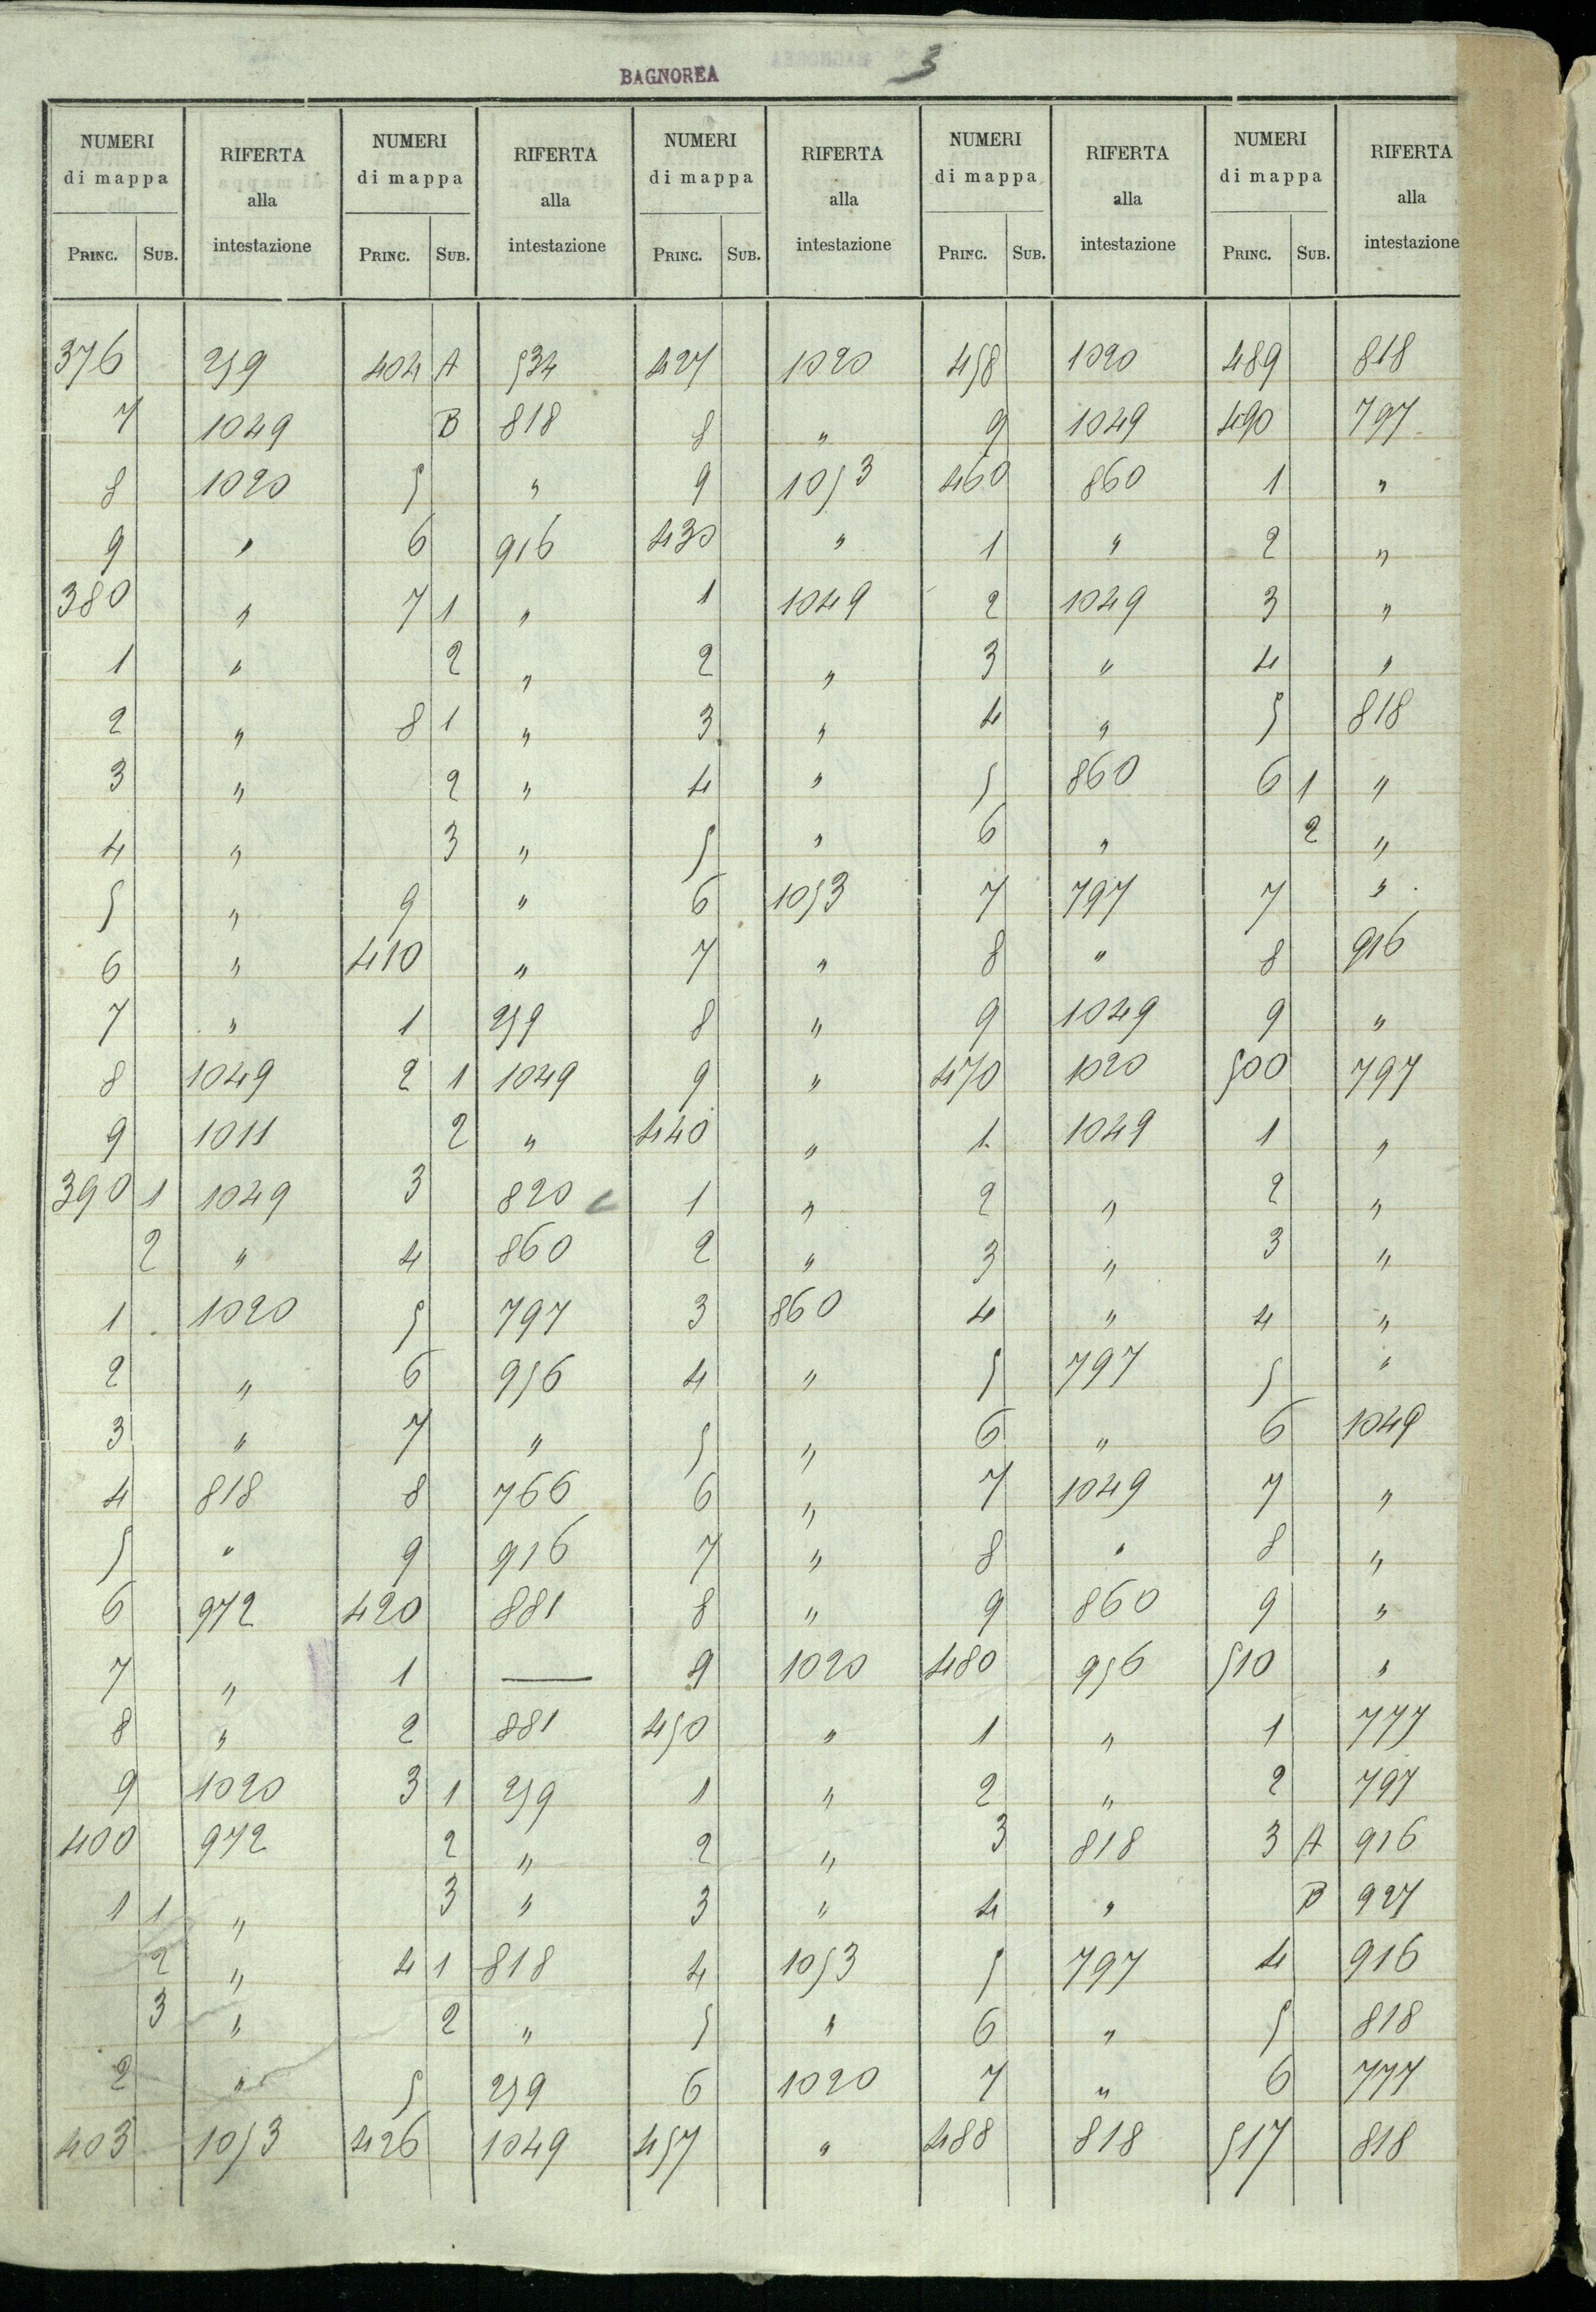 BAGNOREA 3
NUMERI di mappa RIFERTA alla intestazione NUMERI di mappa RIFERTA alla intestazione NUMERI di mappa RIFERTA alla intestazione NUMERI di mappa RIFERTA alla intestazione NUMERI di mappa RIFERTA alla intestazione
PRINC. SUB. PRINC. SUB. PRINC. SUB. PRINC. SUB. PRINC. SUB.
376 259 404 A 534 427 1020 458 1020 489 818
7 1049 B 818 8 " 9 1049 490 797
8 1020 5 " 9 1053 460 860 1 "
9 " 6 916 430 " 1 " 2 "
380 " 7 1 " 1 1049 2 1049 3 "
1 " 2 " 2 " 3 " 4 "
2 " 8 1 " 3 " 4 " 5 818
3 " 2 " 4 " 5 860 6 1 "
4 " 3 " 5 " 6 " 2 "
5 " 9 " 6 1053 7 797 7 "
6 " 410 " 7 " 8 " 8 916
7 " 1 259 8 " 9 1049 9 "
8 1049 2 1 1049 9 " 470 1020 500 797
9 1011 2 " 440 " 1 1049 1 "
390 1 1049 3 820 1 " 2 " 2 "
2 " 4 860 2 " 3 " 3 "
1 1020 5 797 3 860 4 " 4 "
2 " 6 956 4 " 5 797 5 "
3 " 7 " 5 " 6 " 6 1049
4 818 8 766 6 " 7 1049 7 "
5 " 9 916 7 " 8 " 8 "
6 972 420 881 8 " 9 860 9 "
7 " 1 — 9 1020 480 956 510 "
8 " 2 881 450 " 1 " 1 777
9 1020 3 1 259 1 " 2 " 2 797
400 972 2 " 2 " 3 818 3 A 916
1 1 " 3 " 3 " 4 " B 927
2 " 4 1 818 4 1053 5 797 4 916
3 " 2 " 5 " 6 " 5 818
2 " 5 259 6 1020 7 " 6 777
403 1053 426 1049 457 " 488 818 517 818